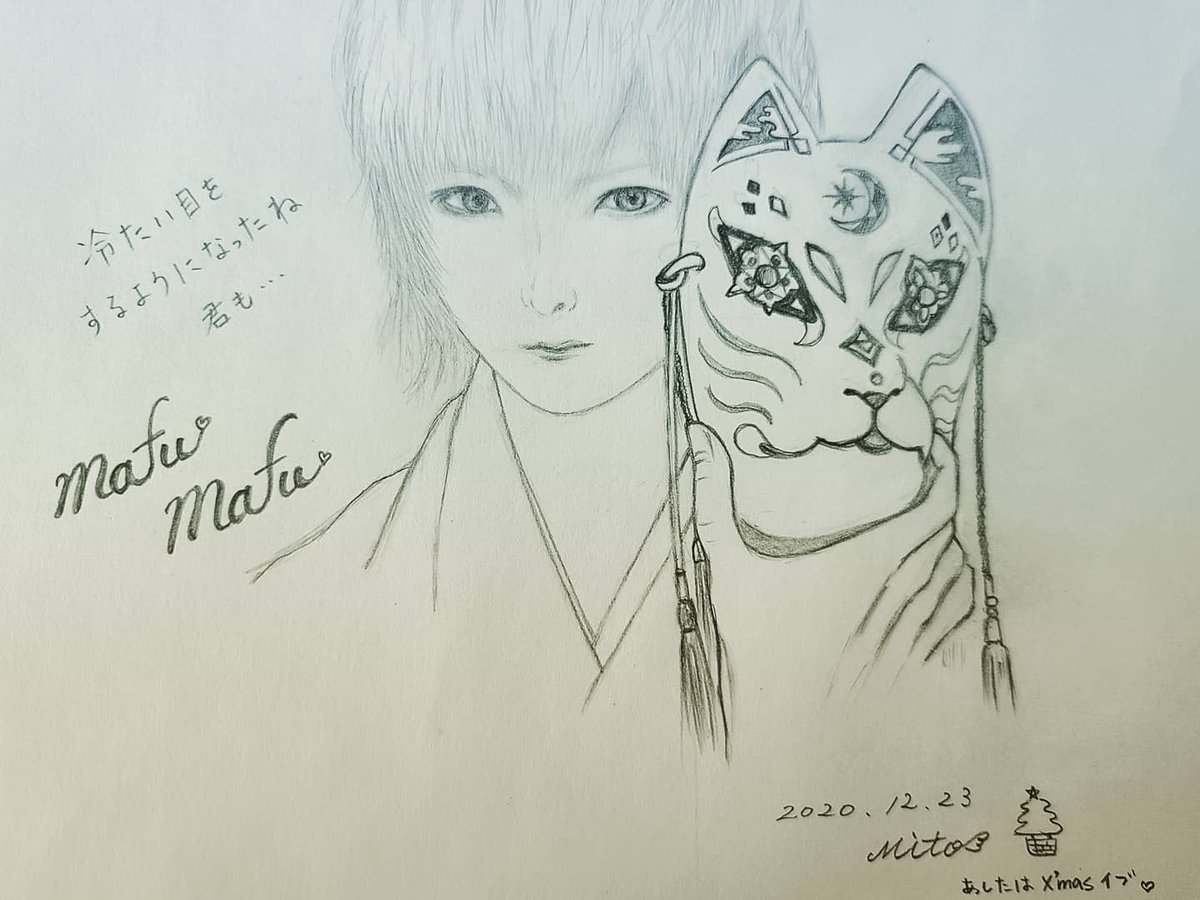 冷たい目を
するようになったね
君も…
mafu
mafu
2020.12.23
Mito
あしたは X'mas イブ♡